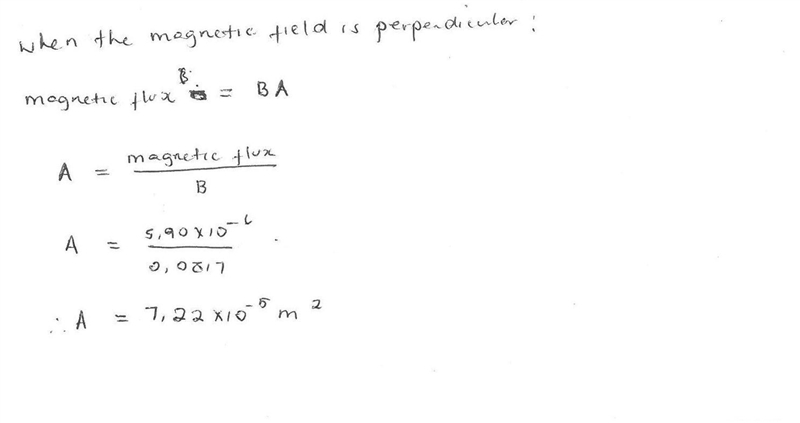 when the magnetic field is perpendicular :
B
magnetic flux = BA
A = magnetic flux / B
A = 5,90 x 10^-6 / 0,0817
∴ A = 7,22 x 10^-5 m^2